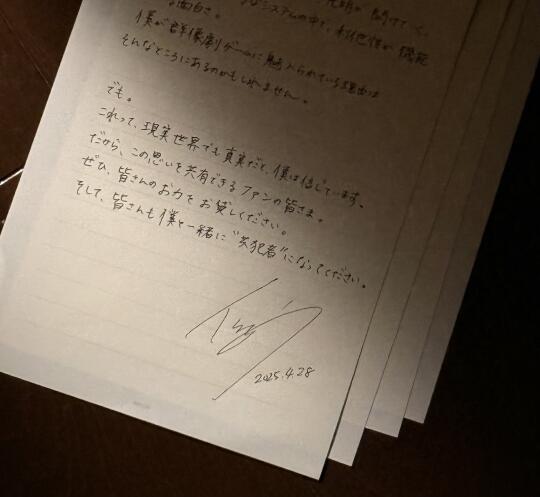 システムの中で、利他性が機能
る面白さ。
僕が群像劇ゲームに魅入られている理由は
そんなところにあるのかもしれません。
でも。
これって、現実世界でも真実だと、僕は信じています。
だから、この思いを共有できるファンの皆さま。
ぜひ、皆さんのお力をお貸しください。
そして、皆さんも僕と一緒に"共犯者"になってください。
2025.4.28